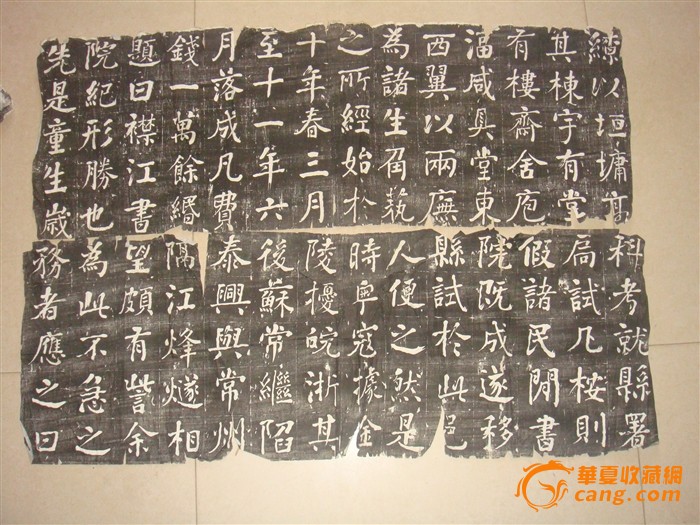 繚以垣墉高
其棟宇有堂
有樓齋舍庖
湢咸具堂東
西翼以兩廡
為諸生角蓺
之所經始於
十年春三月
至十一年六
月落成凡費
錢一萬餘緡
題曰襟江書
院紀形勝也
先是童生歲
科考就縣署
扃試几桉則
假諸民間書
院既成遂移
縣試於此邑
人便之然是
時寧寇據金
陵擾皖浙其
後蘇常繼陷
泰興與常州
隔江烽燧相
望頗有訾余
為此不急之
務者應之曰
華夏收藏網
cang.com